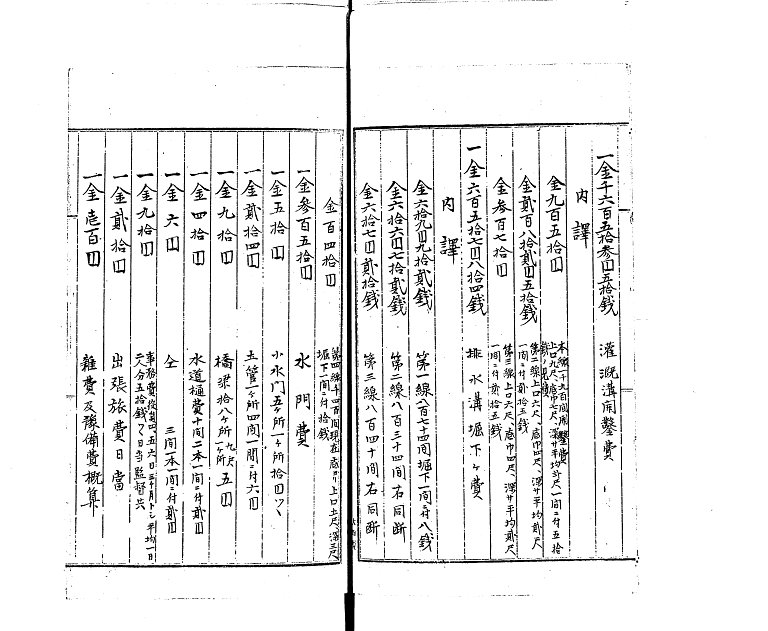 一金千六百五拾参円五拾銭 灌漑溝開鑿費
内譯
金九百五拾円 本線一千九百間開鑿費
上口九尺、底巾七尺、深サ平均弐尺一間ニ付五拾銭
金貳百八拾貳円五拾銭 第二線上口七尺、底巾四尺、深サ平均貳尺
一間ニ付貳拾五銭
金参百七拾円 第三線上口六尺、底巾四尺、深サ平均貳尺
一間ニ付貳拾五銭
一金六百五拾七円八拾四銭 排水溝堀下ヶ費
内譯
金六拾九円九拾貳銭 第一線八百七十四間堀下一間ニ付八銭
金六拾六円七拾貳銭 第二線八百三十四間右同断
金六拾七円貳拾銭 第三線八百四十間右同断
金百四拾円 第四線千四百間現在底巾上口七尺、深三尺
堀下一間ニ付拾銭
一金参百五拾円 水門費
一金五拾円 小水門五ヶ所一ヶ所拾円ツヽ
一金貳拾四円 土管一ヶ所四間一間ニ付六円
一金九拾円 橋梁拾八ヶ所九尺一ヶ所五円
一金四拾円 水道樋費十間二本一間ニ付貳円
一金六円 仝 三間一本一間ニ付貳円
一金九拾円 事務費
二人分五拾銭
一金貳拾円 出張旅費日當
一金壱百円 雜費及豫備費概算